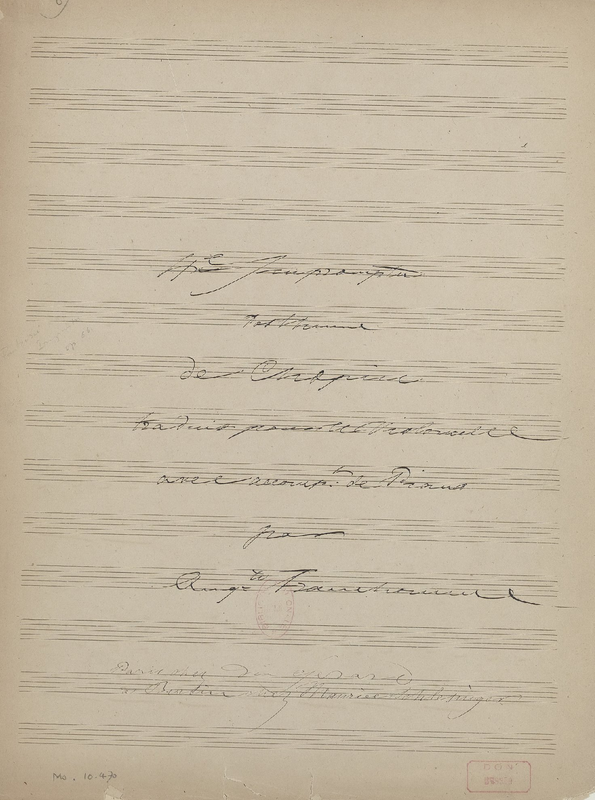 4e Impromptu
Posthume
de Chopin
traduit pour le Violoncelle
avec accompt. de Piano
par
Augte Franchomme
à Berlin chez Maurice Schlesinger
Ms. 10.470